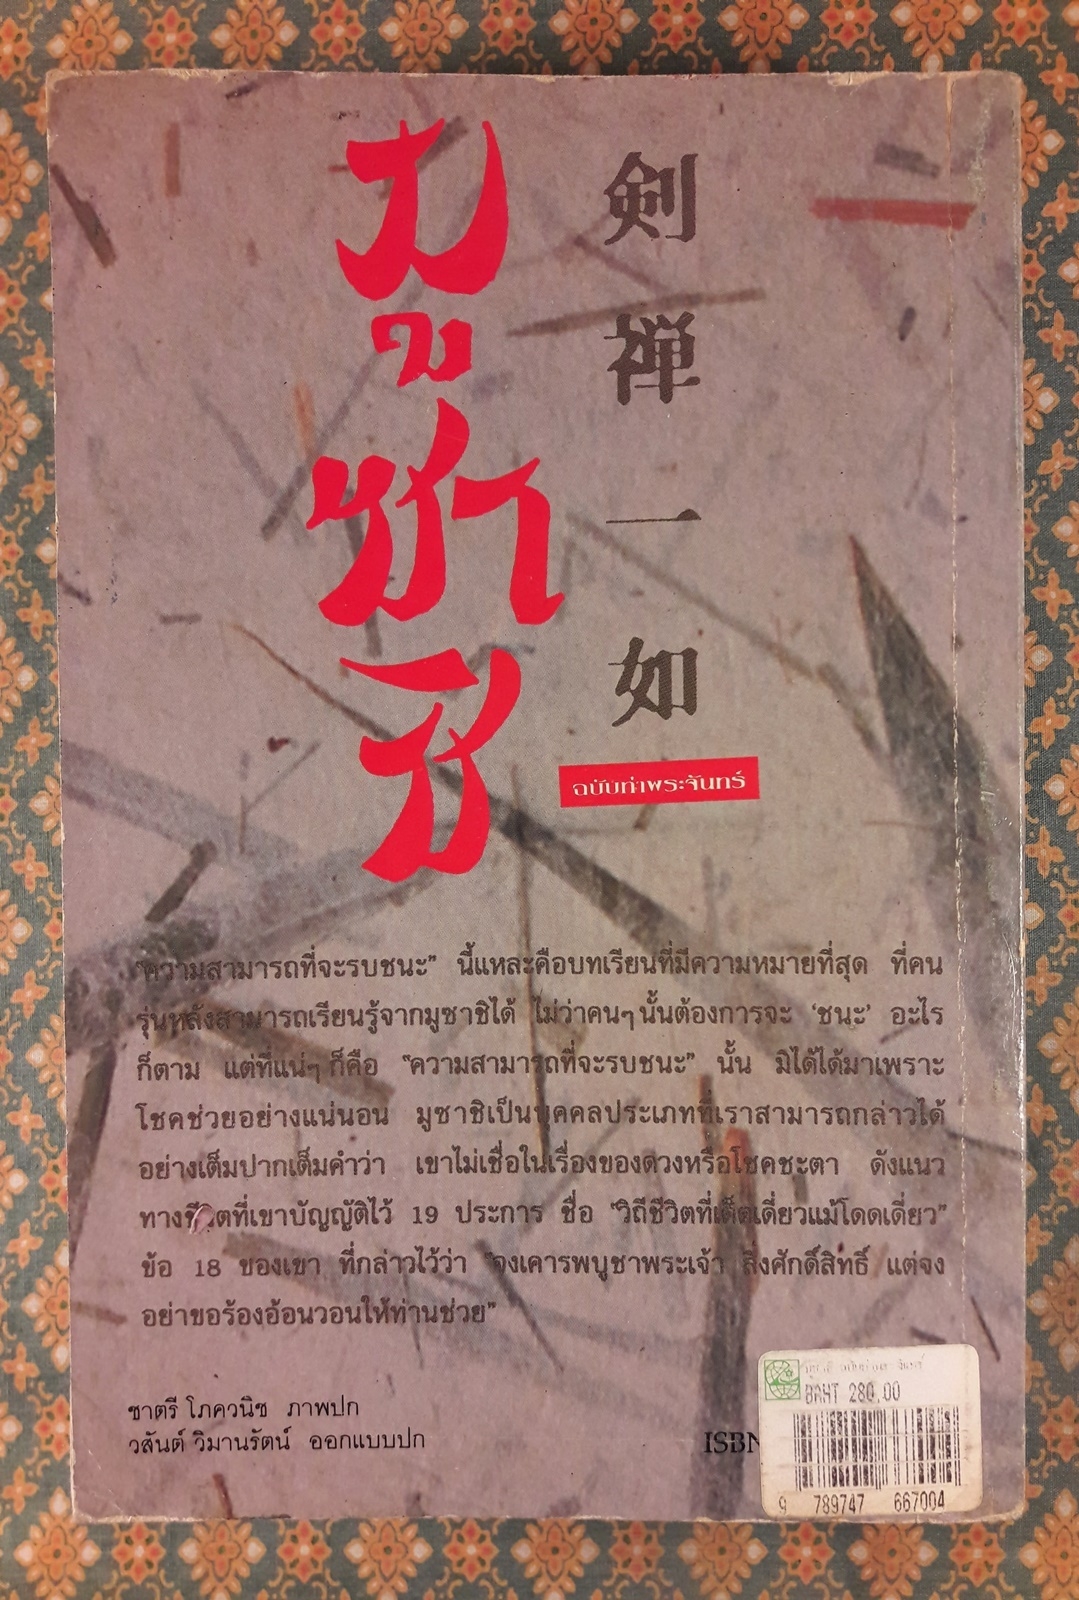 มูซาชิ
剣禅一如
ฉบับท่าพระจันทร์
“ความสามารถที่จะรบชนะ” นี้แหละคือบทเรียนที่มีความหมายที่สุด ที่คน
รุ่นหลังสามารถเรียนรู้จากมูซาชิได้ ไม่ว่าคนๆ นั้นต้องการจะ ‘ชนะ’ อะไร
ก็ตาม แต่ที่แน่ๆ ก็คือ “ความสามารถที่จะรบชนะ” นั้น มิได้ได้มาเพราะ
โชคช่วยอย่างแน่นอน มูซาชิเป็นบุคคลประเภทที่เราสามารถกล่าวได้
อย่างเต็มปากเต็มคำว่า เขาไม่เชื่อในเรื่องของดวงหรือโชคชะตา ดังแนว
ทางชีวิตที่เขาบัญญัติไว้ 19 ประการ ชื่อ “วิถีชีวิตที่เด็ดเดี่ยวแม้โดดเดี่ยว”
ข้อ 18 ของเขา ที่กล่าวไว้ว่า “จงเคารพบูชาพระเจ้า สิ่งศักดิ์สิทธิ์ แต่จง
อย่าขอร้องอ้อนวอนให้ท่านช่วย”
ชาตรี โภควนิช ภาพปก
วสันต์ วิมานรัตน์ ออกแบบปก
ISBN
BAHT 280.00
9 789747 667004